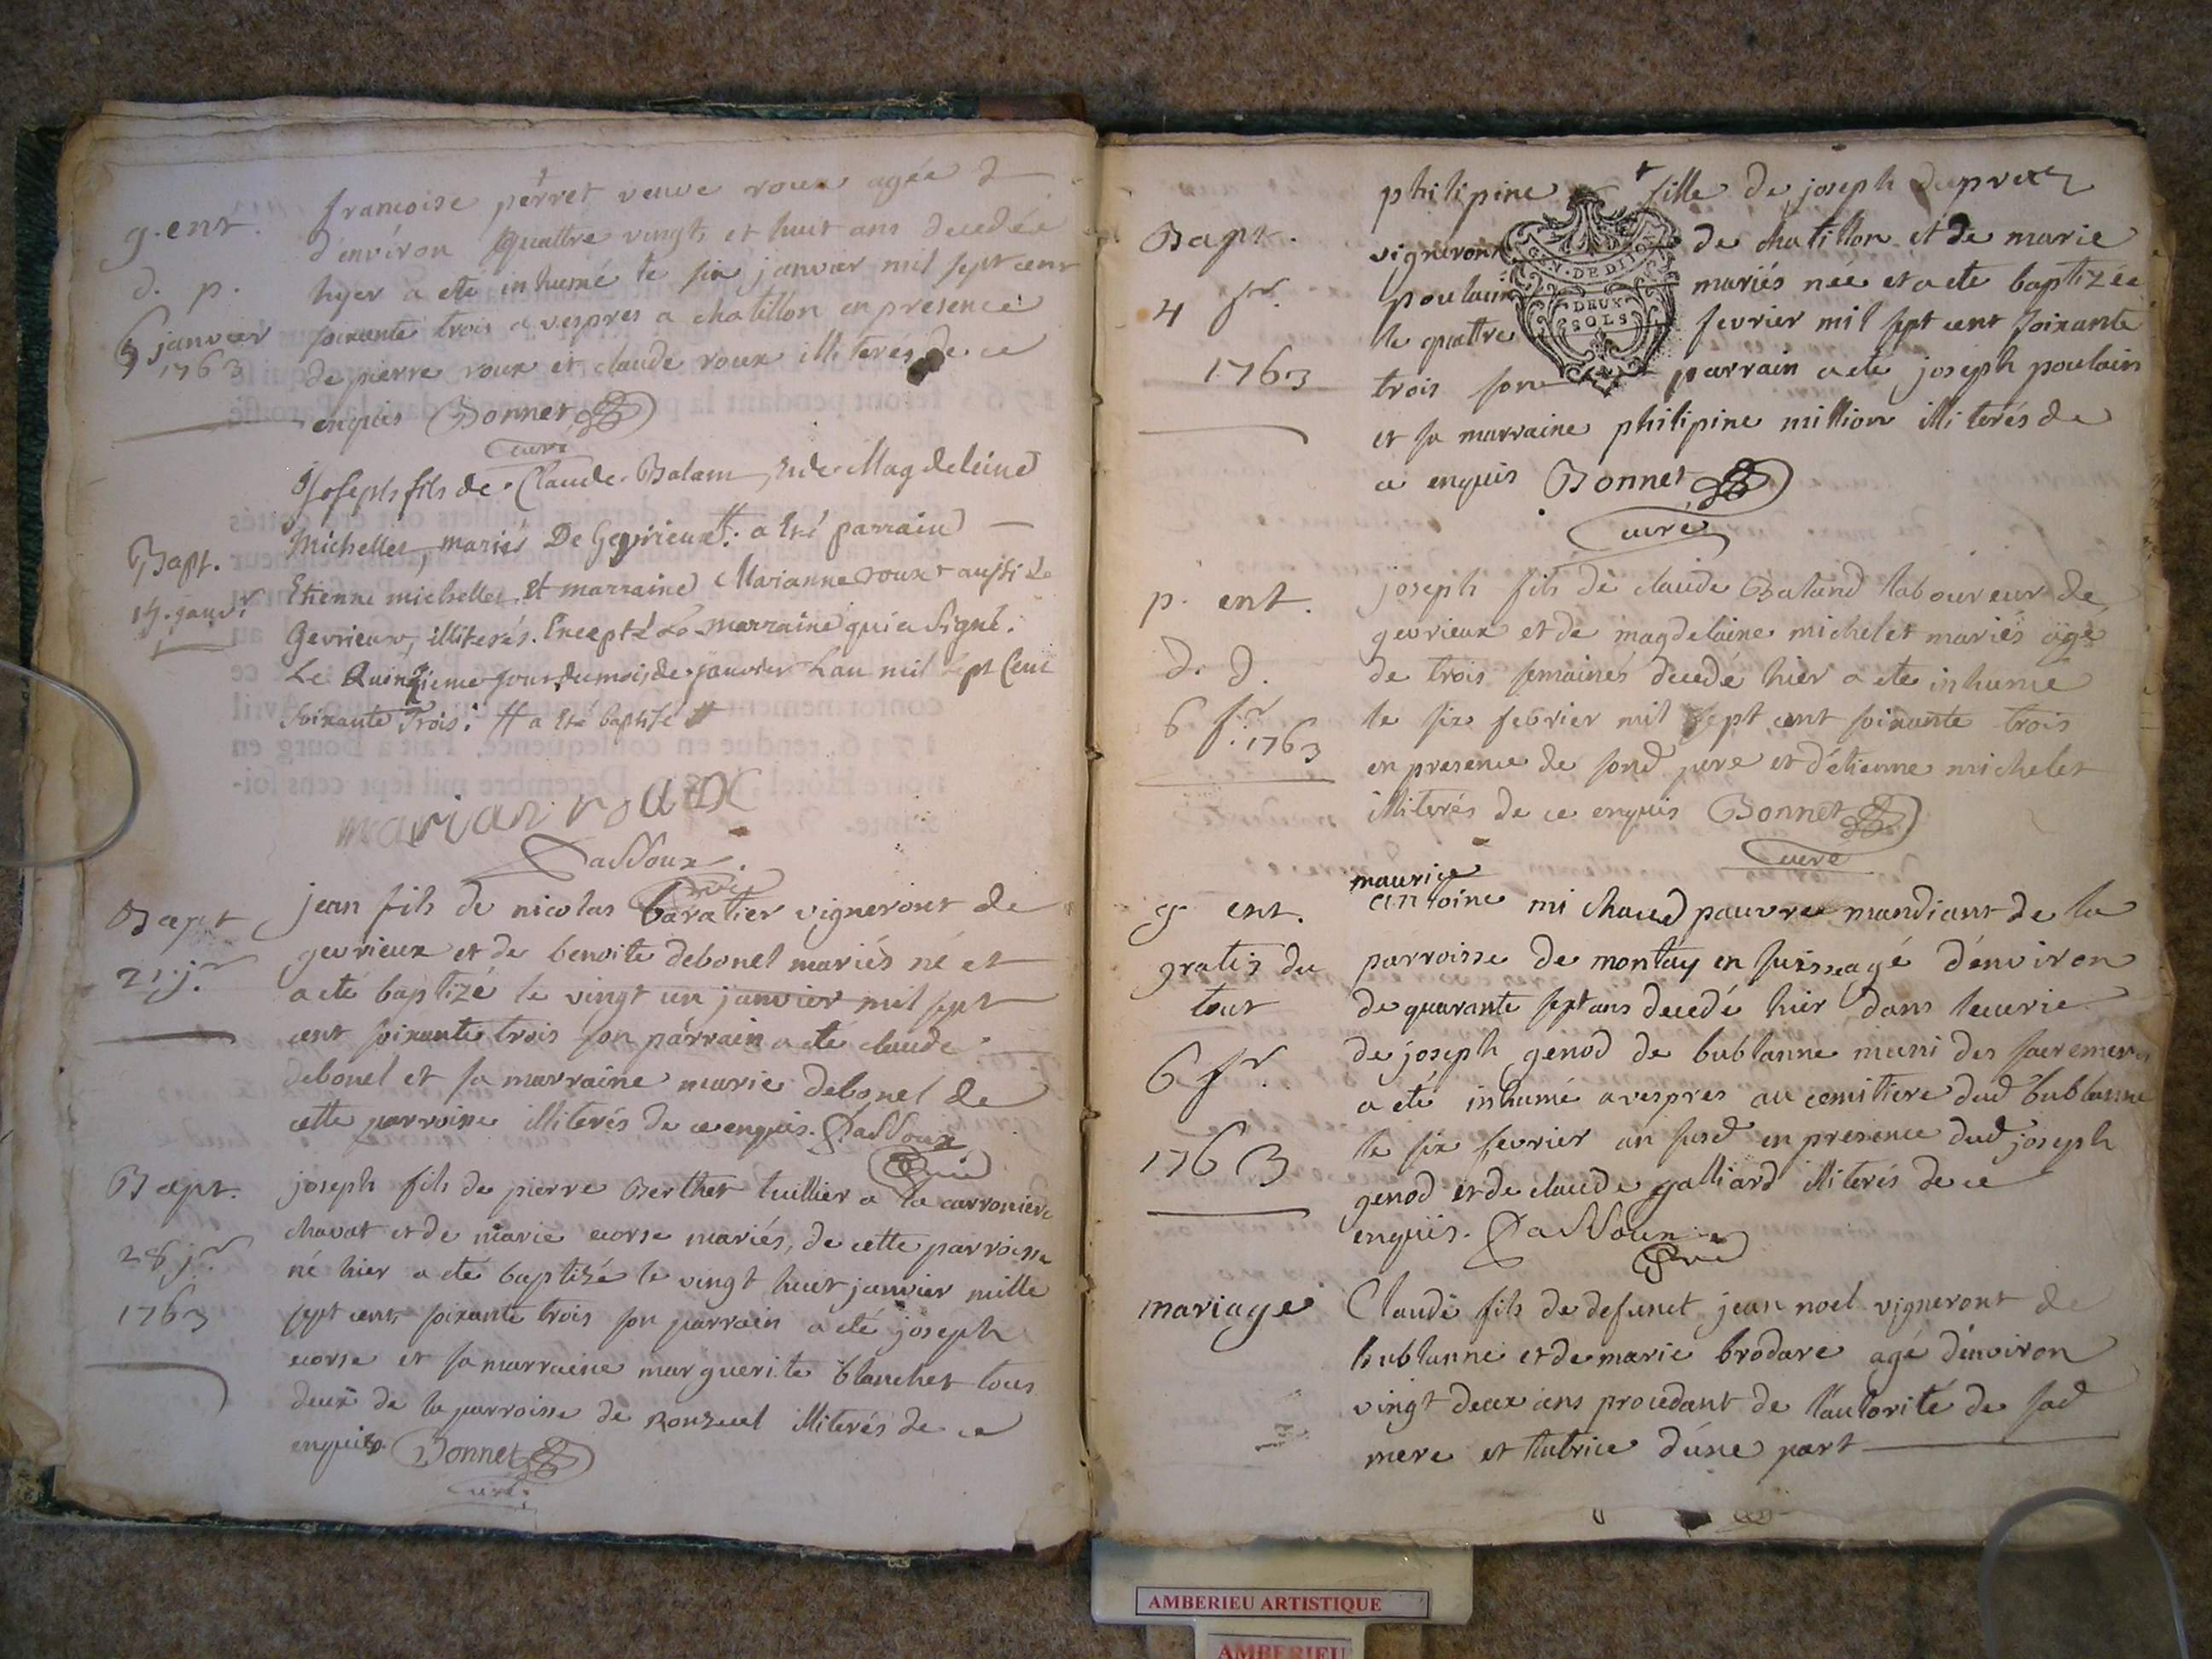 g. ent.
d. p.
6 janvier
1763
francoise perret veuve roux agée d
d'environ quattre vingt et huit ans decedée
hyer a eté inhumé le six janvier mil sept cent
soixante trois a vespres a chatillon en presence
de pierre roux et claude roux illiteres de ce
enquis Bonnet
curé
Bapt.
15. janvr
Joseph fils de Claude Balam, Et de Magdeleine
Michellet, mariés De Gevrieux # a Eté parrain
Etienne michellet Et marraine Marianne roux aussi de
Gevrieux, illiterés. Excepté La marraine qui a Signé.
Le Quinzieme jour du mois de janvier L'an mil Sept Cent
Soixante Trois. # a Eté baptisé #
marian roux
Passoux
Curé
Bapt
21 jr
jean fils de nicolas baratier vigneront de
gevrieux et de benoite debonel mariés né et
a eté baptizé le vingt un janvier mil sept
cent soixante trois son parrain a eté claude
debonel et sa marraine marie debonel de
cette parroisse illiterés de ce enquis. Passoux
Curé
Bapt.
28 jr
1763
joseph fils de pierre Berthet tuillier a la carroniere
chavat et de marie ecorse mariés, de cette parroisse
né hier a eté baptizé le vingt huit janvier mille
sept cent soixante trois son parrain a eté joseph
ecorse et sa marraine marguerite blanchet tous
deux de la parroisse de Ronzuel illiterés de ce
enquis Bonnet
curé
Bapt.
4 fr.
1763
philipine fille de joseph duprez
vigneront de chatillon et de marie
poulain mariés née et a eté baptizée
le quattre fevrier mil sept cent soixante
trois son parrain a eté joseph poulain
et sa marraine philipine million illiterés de
ce enquis Bonnet
curé
GEN. DE DIJON
DEUX
SOLS
p. ent.
d. d.
6 fr. 1763
joseph fils de claude Baland laboureur de
gevrieux et de magdelaine michelet mariés agé
de trois semaines decedé hier a eté inhumé
le six fevrier mil sept cent soixante trois
en presence de sond pere et d'étienne michelet
illiterés de ce enquis Bonnet
curé
g ent.
gratis du
tout
6 fr.
1763
maurice
antoine michaud pauvre mandiant de la
parroisse de montay en suisse agé d'environ
de quarante sept ans decedé hier dans l'ecurie
de joseph genod de bublanne muni des sacremens
a eté inhumé a vespres au cemitiere dud bublanne
le six fevrier an susd en presence dud joseph
genod et de claude galliard illiterés de ce
enquis. Passoux
Curé
mariage
Claude fils de defunct jean noel vigneront de
bublanne et de marie brodare agé d'environ
vingt deux ans procedant de l'autorité de sad
mere et tutrice d'une part
AMBERIEU ARTISTIQUE
AMBERIEU